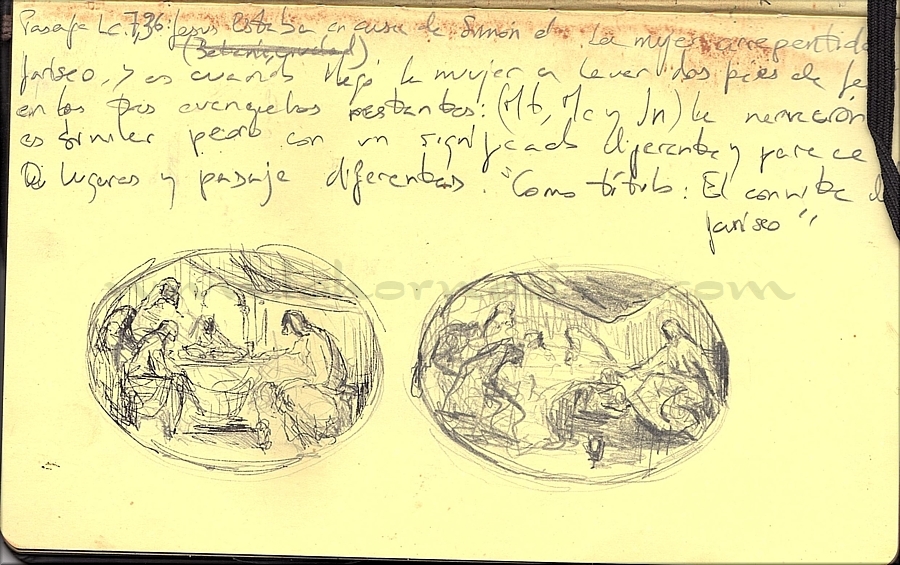 Pasaje Lc. 7,36 Jesus Estaba en casa de Simón el La mujer arrepentida
(Betania, ciudad)
fariseo, y es cuando llegó la mujer a lavar los pies de Je
en los tres evangelios restantes: (Mt, Mc y Jn) la narración
es similar pero con un significado diferente y parece
lugares y pasaje diferentes. "Como título: El convite d
fariseo"